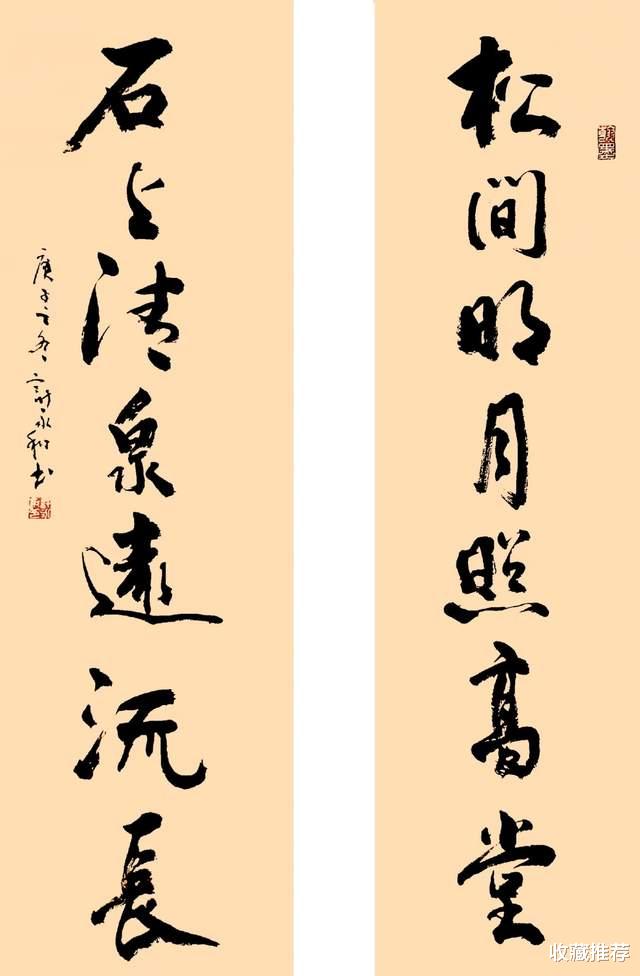 松間明月照高堂
石上清泉遠流長
庚子之冬 永和书
收藏推荐